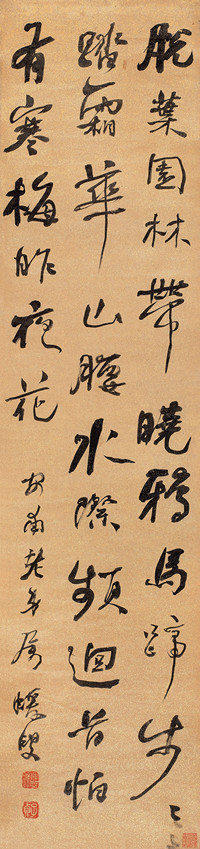 脫葉園林帶曉鴉馬蹄步〻
踏霜華山腰水際頻迴首怕
有寒梅昨夜花
老弟屬 蝯叟